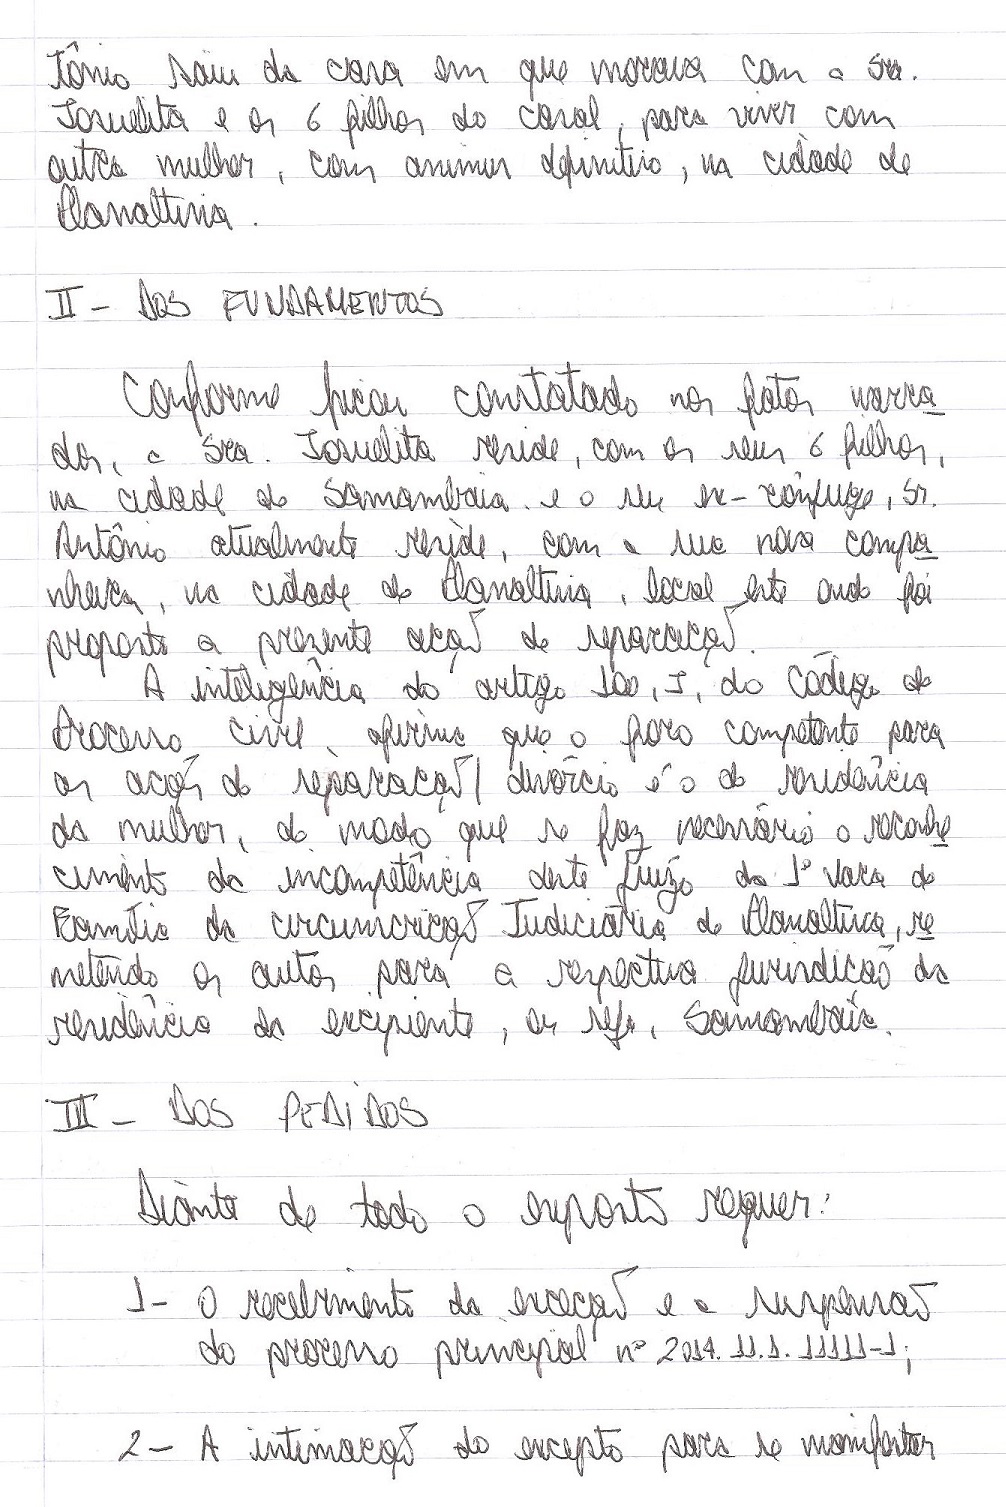 tônio saiu da casa em que morava com a sra.
Josuelita e os 6 filhos do casal, para viver com
outra mulher, com animus definitivo, na cidade de
Planaltina.
II - DOS FUNDAMENTOS
Conforme ficou constatado nos fatos narra
dos, a Sra. Josuelita reside, com os seus 6 filhos,
na cidade de Samambaia e o seu ex-cônjuge, Sr.
Antônio atualmente reside, com a sua nova compa
nheira, na cidade de Planaltina, local este onde foi
proposto a presente ação de separação.
A inteligência do artigo 100, I, do Código de
Processo Civil, afirma que o foro competente para
as ações de separação/divórcio é o de residência
da mulher, de modo que se faz necessário o reconhe
cimento da incompetência deste Juízo da 1ª Vara de
Família da circunscrição Judiciária de Planaltina, re
metendo os autos para a respectiva jurisdição da
residência da excipiente, Samambaia.
III - DOS PEDIDOS
Diante de todo o exposto requer:
1- O recebimento da exceção e a suspensão
do processo principal nº 2014.11.1.11111-1;
2- A intimação do excepto para se manifestar